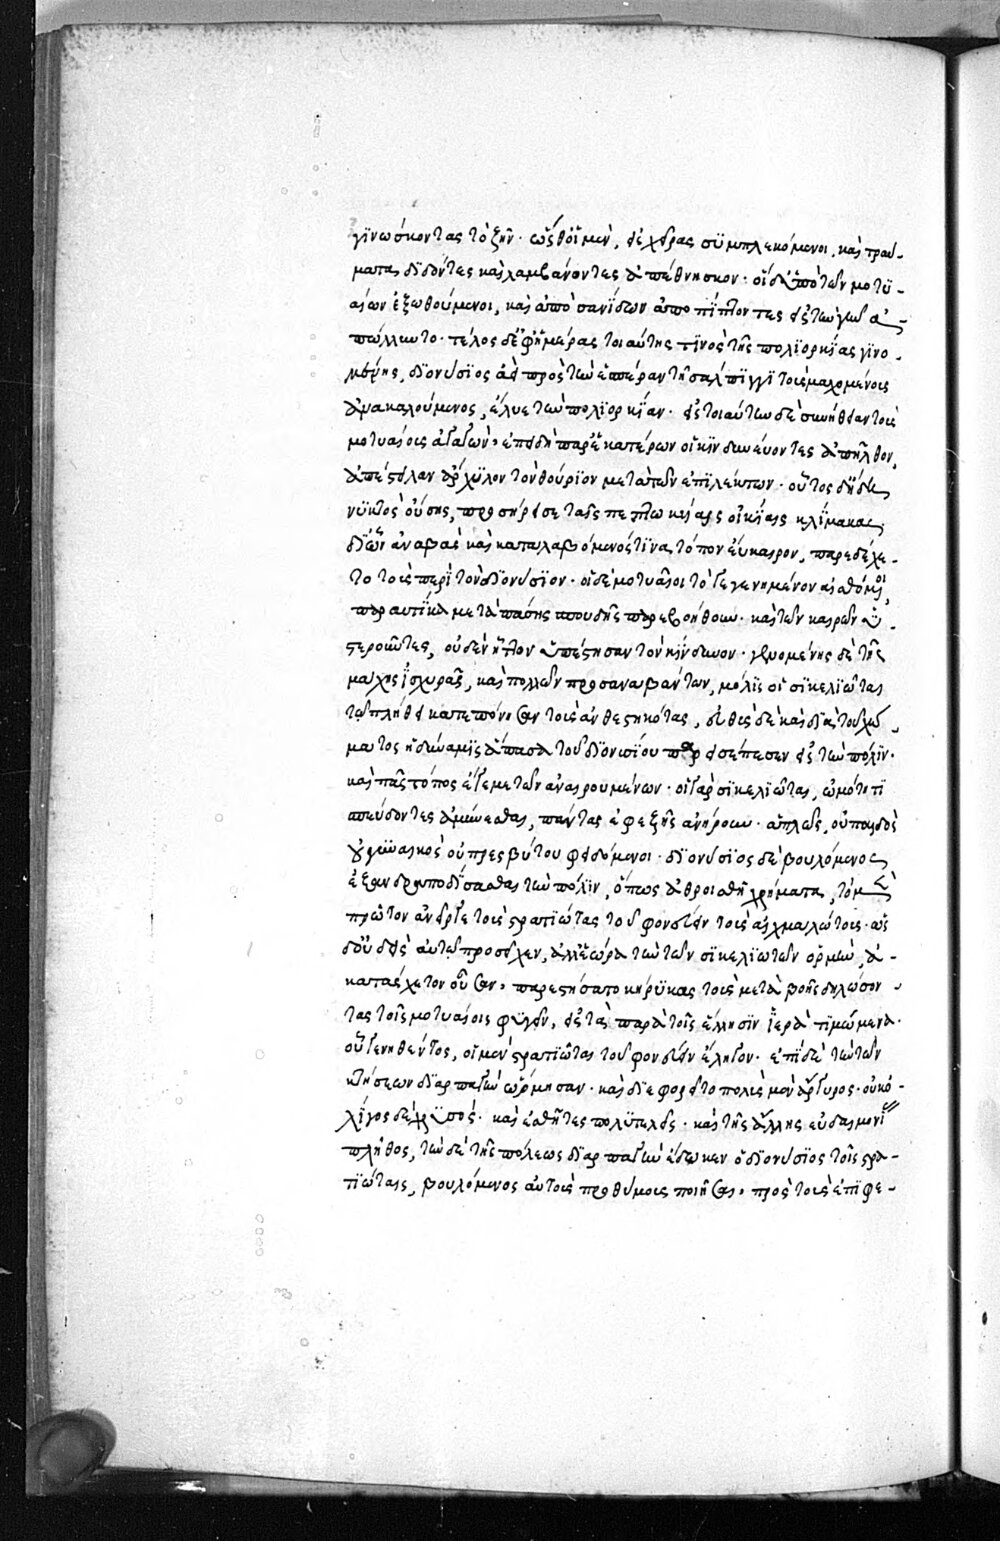 γινώσκοντας τὸ ζῆν. ὥσθ᾽ οἱ μὲν, εἰς χεῖρας συμπλεκόμενοι, καὶ τραύ-
ματα διδόντες καὶ λαμβάνοντες ἀπέθνησκον. οἱ δ᾽ ὑπὸ τῶν μοτυ-
αίων ἐξωθούμενοι, καὶ ἀπὸ σανίδων ἀποπίπτοντες εἰς τὴν γῆν ἀ-
πώλλυντο. τέλος δ᾽ ἐφ᾽ ἡμέρας τοιαύτης τινὸς τῆς πολιορκίας γινο-
μένης, διονύσιος ἀεὶ πρὸς τὴν ἑσπέραν τῇ σάλπιγγι τοὺς μαχομένους
ἀνακαλούμενος, ἔλυε τὴν πολιορκίαν. εἰς τοιαύτην δὲ συνήθειαν τοὺς
μοτυαίους ἀγαγὼν, ἐπειδὴ παρ᾽ ἑκατέρων οἱ κινδυνεύοντες ἀπῆλθον,
ἀπέστειλαν ἀρχύλον τὸν θούριον μετὰ τῶν ἐπιλέκτων. οὗτος δ᾽ ἤδη
νυκτὸς οὔσης, προσήρεισε ταῖς πεπτωκυίαις οἰκίαις κλίμακας,
δι᾽ ὧν ἀναβὰς καὶ καταλαβόμενός τινα τόπον εὔκαιρον, παρεδέχε-
το τοὺς περὶ τὸν διονύσιον. οἱ δὲ μοτυαῖοι τὸ γεγενημένον αἰσθόμενοι,
παραυτίκα μετὰ πάσης σπουδῆς παρεβοήθουν. καὶ τῶν καιρῶν ὑ-
στεροῦντες, οὐδὲν ἧττον ὑπέστησαν τὸν κίνδυνον. γενομένης δὲ τῆς
μάχης ἰσχυρᾶς, καὶ πολλῶν προσαναβάντων, μόλις οἱ σικελιῶται
τῷ πλήθει κατεπόνησαν τοὺς ἀνθεστηκότας, εὐθὺς δὲ καὶ διὰ τοῦ χώ-
ματος ἡ δύναμις ἅπασα τοῦ διονυσίου παρεισέπεσεν εἰς τὴν πόλιν.
καὶ πᾶς τόπος ἔγεμε τῶν ἀναιρουμένων. οἱ γὰρ σικελιῶται, ὠμότητι
σπεύδοντες ἀμύνεσθαι, πάντας ἐφεξῆς ἀνῄρουν. ἁπλῶς, οὐ παιδὸς
οὐ γυναικὸς οὐ πρεσβύτου φειδόμενοι. διονύσιος δὲ βουλόμενος
ἐξανδραποδίσασθαι τὴν πόλιν, ὅπως ἀθροισθῇ χρήματα, τὸ μὲν
πρῶτον ἀνεῖργε τοὺς στρατιώτας τοῦ φονεύειν τοὺς αἰχμαλώτους. ὡς
δ᾽ οὐδεὶς αὐτῷ προσεῖχεν, ἀλλ᾽ ἑώρα τὴν τῶν σικελιωτῶν ὁρμὴν, ἀ-
κατάσχετον οὖσαν, παρεστήσατο κήρυκας τοὺς μετὰ βοῆς δηλώσον-
τας τοῖς μοτυαίοις φυγεῖν, εἰς τὰ παρὰ τοῖς ἕλλησιν ἱερὰ τιμώμενα.
οὗ γενηθέντος, οἱ μὲν στρατιῶται τοῦ φονεύειν ἔληγον. ἐπὶ δὲ τὴν τῶν
κτήσεων διαρπαγὴν ὥρμησαν. καὶ διεφορεῖτο πολὺς μὲν ἄργυρος. οὐκ ὀ-
λίγος δὲ χρυσὸς. καὶ ἐσθῆτες πολυτελεῖς. καὶ τῆς ἄλλης εὐδαιμονίας
πλῆθος, τὴν δὲ τῆς πόλεως διαρπαγὴν ἔδωκεν ὁ διονύσιος τοῖς στρα-
τιώταις, βουλόμενος αὐτοὺς προθύμους ποιῆσαι, πρὸς τοὺς ἐπιφε-